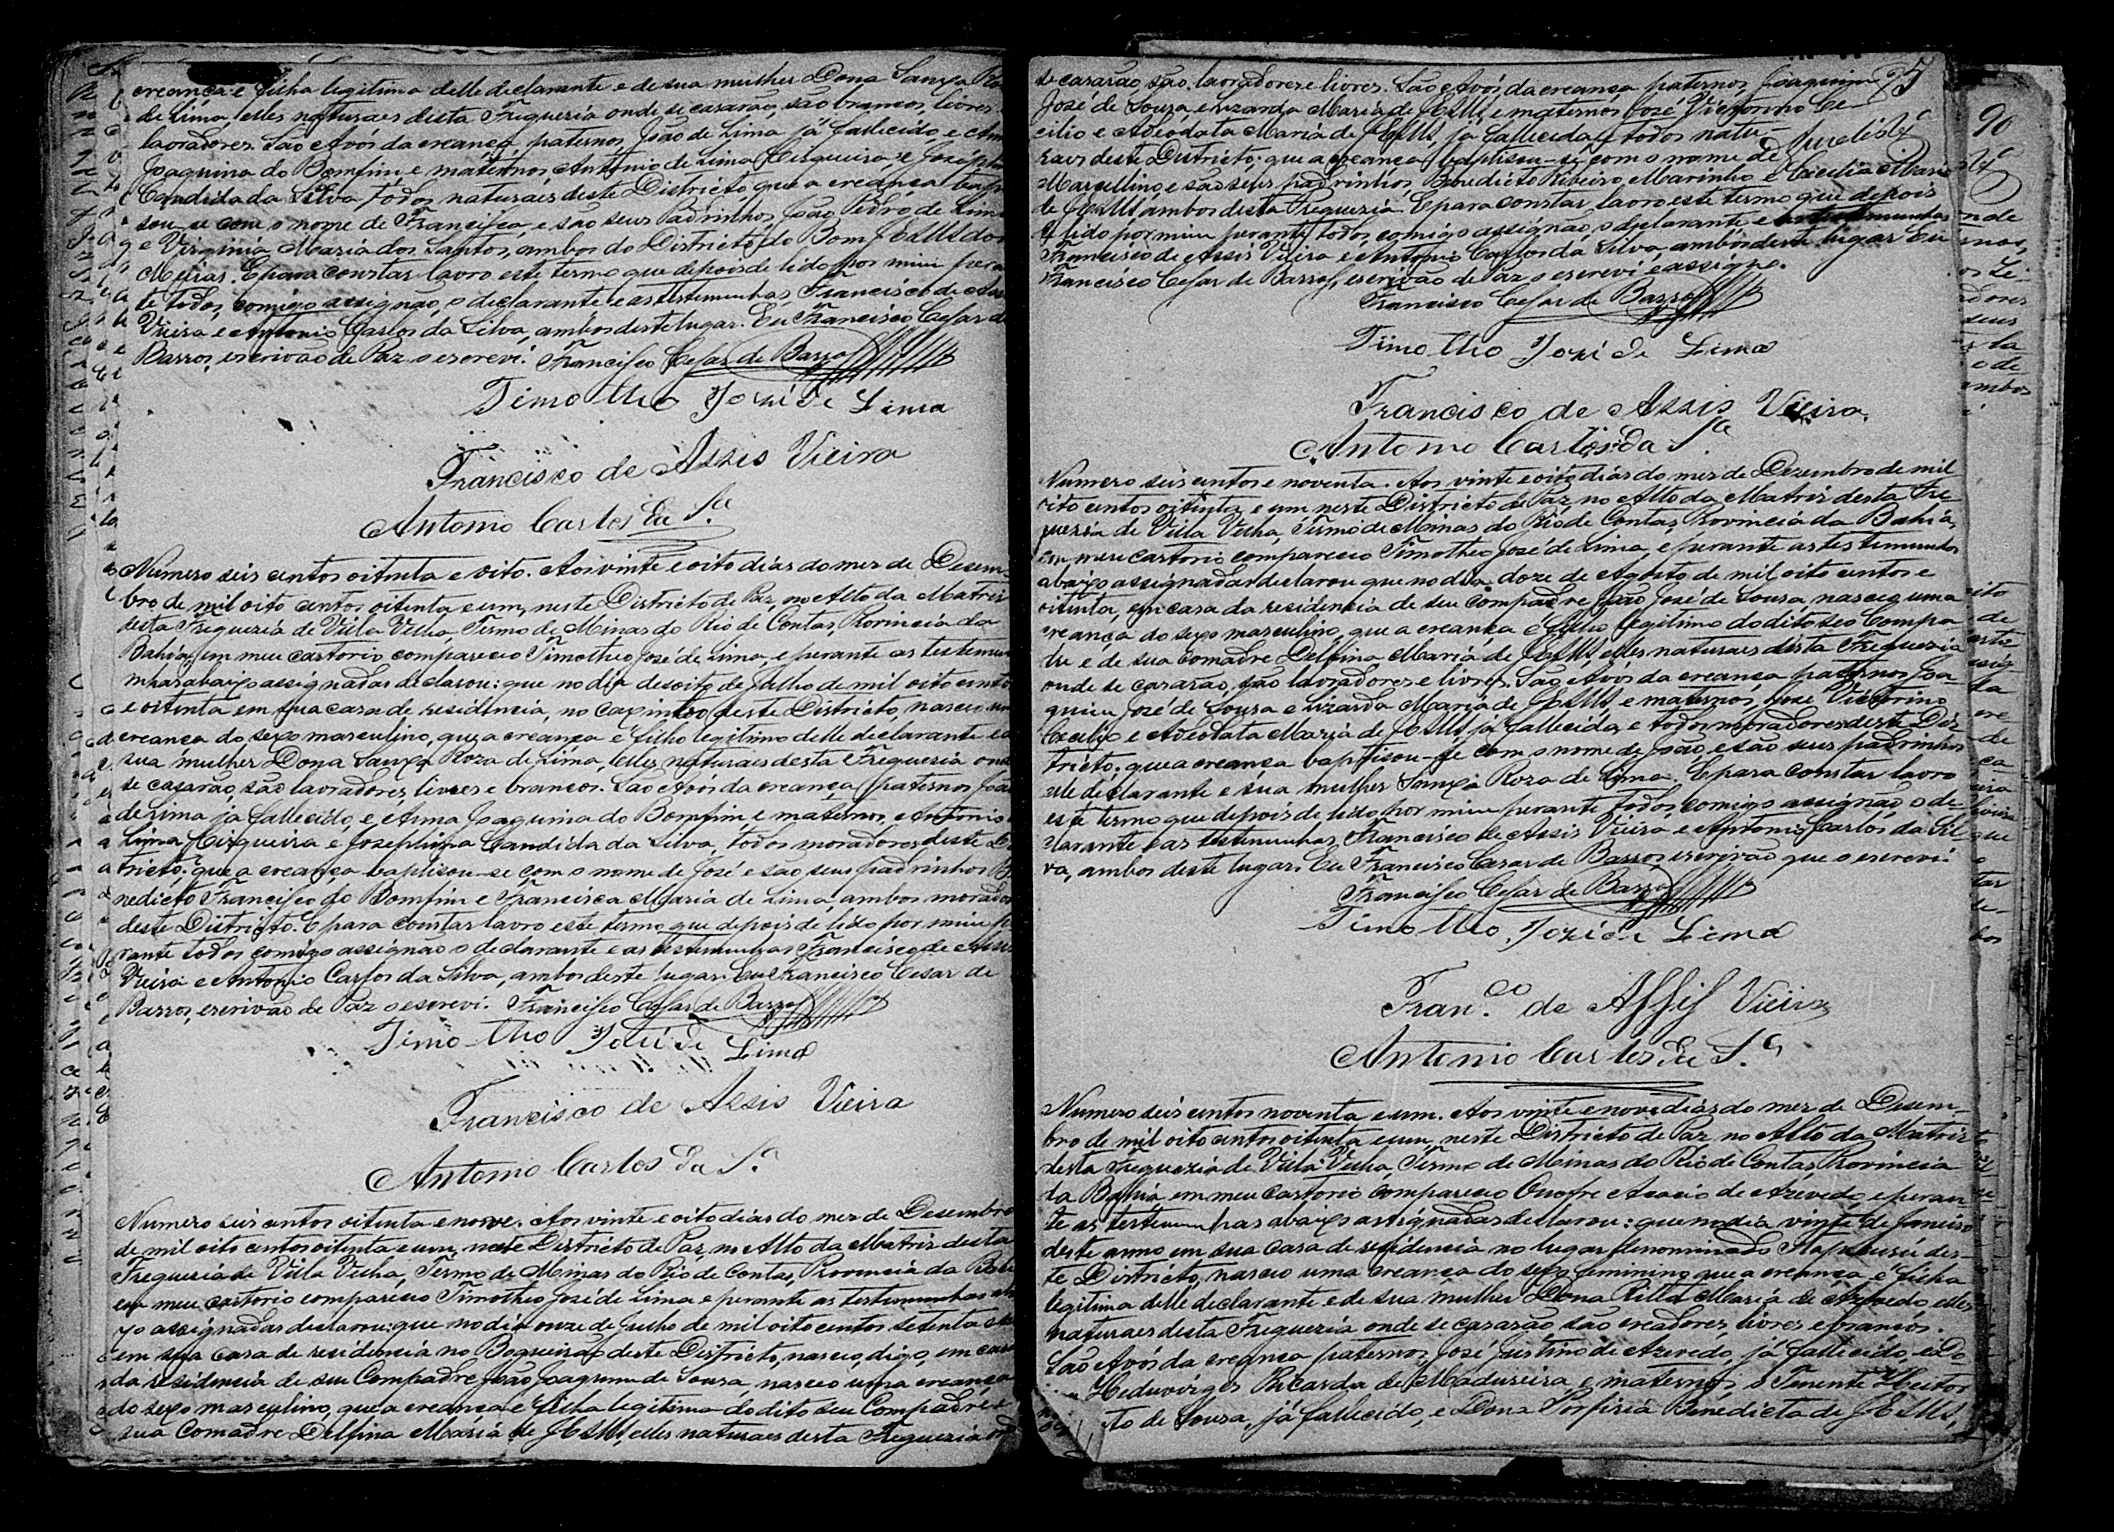 creança é filha legitima delle declarante e de sua mulher Dona Sanxa
de Lima, elles naturaes desta Freguezia onde se casarão, são brancos, livres
lavradores. São Avós da creança, paternos, João de Lima já fallecido, e
Joaquina do Bomfim e maternos Antonio de Lima Cirqueira e
Candida da Silva, todos naturaes deste Districto, que a creança
sou-se com o nome de Francisca, e são seus Padrinhos João Pedro de
e Virginia Maria dos Santos, ambos do Districto do Bom JESUS dos
Meiras. E para constar lavro este termo que depois de lido por mim
te todos, comigo assignão, o declarante e as testemunhas, Francisco de
Vieira e Antonio Carlos da Silva, ambos deste lugar. Eu Francisco Cesar de
Barros, escrivão de Paz o escrevi. Francisco Cesar de Barros
Timotheo José de Lima
Francisco de Assis Vieira
Antonio Carlos da S.ª
Numero seis centos oitenta e oito. Aos vinte e oito dias do mez de Desem-
bro de mil oito centos oitenta e um, neste Districto de Paz, no Alto da Matriz
desta Freguezia de Villa Velha, Termo de Minas do Rio de Contas, Provincia da
Bahia, em meu cartorio compareceo Timotheo José de Lima, e perante as testemu
nhas abaixo assignadas declarou: que no dia desoito de Julho de mil oito centos
e oitenta em sua casa de residencia, no deste Districto, nasceu
creança do sexo masculino, que a creança é filho legitimo delle declarante e
sua mulher Dona Sanxa Roza de Lima, elles naturaes desta Freguezia onde
se casarão, são lavradores, livres e brancos. São Avós da creança, paternos João
de Lima já fallecido, e Anna Joaquina do Bomfim, e maternos, Antonio
Lima Cirqueira e Josephina Candida da Silva, todos moradores deste
tricto; que a creança baptisou-se com o nome de José e são seus padrinhos
nedicto Francisco do Bomfim e Francisca Maria de Lima, ambos morado
deste Districto. E para constar lavro este termo que depois de lido por mim
rante todos comigo assignão o declarante e as testemunhas, Francisco de
Vieira e Antonio Carlos da Silva, ambos deste lugar. Eu Francisco Cesar de
Barros, escrivão de Paz o escrevi. Francisco Cesar de Barros
Timotheo José de Lima
Francisco de Assis Vieira
Antonio Carlos da S.ª
Numero seis centos oitenta e nove. Aos vinte e oito dias do mez de Desembro
de mil oito centos oitenta e um, neste Districto de Paz, no Alto da Matriz desta
Freguezia de Villa Velha, Termo de Minas do Rio de Contas, Provincia da
em meu cartorio compareceo Timotheo José de Lima e perante as testemunhas
xo assignadas declarou: que no dia onze de Julho de mil oito centos setenta
em sua casa de residencia no Boqueirão deste Districto, nasceo, digo, em casa
da residencia de seu Compadre João Joaquim de Sousa, nasceo uma creança
do sexo masculino, que a creança é filha legitima do dito seu Compadre e
sua Comadre Delfina Maria de JESUS, elles naturaes desta Freguezia
95
se casarão, são lavradores e livres. São Avós da creança, paternos, Joaquim
José de Sousa, e Lizarda Maria de JESUS, e maternos José Victorino Ce-
cilio e Adeodata Maria de JESUS, já fallecida, e todos natu-
raes deste Districto; que a creança baptisou-se com o nome de
Marcellino, e são seus padrinhos, Benedicto Ribeiro Marinho e Cecilia Maria
de JESUS ambos desta Freguezia. E para constar lavro este termo que depois
de lido por mim perante todos, comigo assignão, o declarante e
Francisco de Assis Vieira e Antonio Carlos da Silva, ambos deste lugar. Eu
Francisco Cesar de Barros, escrivão de Paz o escrevi e assigno.
Francisco Cesar de Barros
Timotheo José de Lima
Francisco de Assis Vieira
Antonio Carlos da S.ª
Numero seis centos e noventa. Aos vinte e oito dias do mez de Dezembro de mil
oito centos oitenta e um neste Districto de Paz, no Alto da Matriz desta Fre-
guezia de Villa Velha, Termo de Minas do Rio de Contas, Provincia da Bahia,
em meu cartorio compareceo Timotheo José de Lima, e perante as testemunhas
abaixo assignadas declarou que no dia doze de Agosto de mil oito centos e
oitenta, em casa da residencia de seu compadre João José de Sousa nasceo uma
creança do sexo masculino, que a creança é filho legitimo do dito seo Compa-
dre e de sua comadre Delfina Maria de JESUS, elles naturaes desta Freguezia
onde se casarão, são lavradores e livres. São Avós da creança paternos Joa-
quim José de Sousa e Lizarda Maria de JESUS, e maternos, José Victorino
Cecilio e Adeodata Maria de JESUS já fallecida, e todos moradores deste Dis-
tricto; que a creança baptisou-se com o nome de João, e são seus padrinhos
elle declarante e sua mulher Sanxa Roza de Lima. E para constar lavro
este termo que depois de lido por mim perante todos, comigo assignão, o de-
clarante e as testemunhas, Francisco de Assis Vieira e Antonio Carlos da Sil-
va, ambos deste lugar. Eu Francisco Cesar de Barros escrivão que o escrevi.
Francisco Cesar de Barros
Timotheo José de Lima
Fran.co de Assis Vieira
Antonio Carlos da S.ª
Numero seis centos noventa e um. Aos vinte e nove dias do mez de Desem-
bro de mil oito centos oitenta e um, neste Districto de Paz no Alto da Matriz
desta Freguezia de Villa Velha, Termo de Minas do Rio de Contas, Provincia
da Bahia em meu cartorio compareceo Onofre Acacio de Azevedo, e peran-
te as testemunhas abaixo assignadas declarou: que no dia vinte de Janeiro
deste anno em sua casa de residencia no lugar denominado des-
te Districto, nasceo uma creança do sexo feminino, que a creança é filha
legitima delle declarante e de sua mulher Dona Ritta Maria de Azevedo, elles
naturaes desta Freguezia onde se casarão são creadores, livres e brancos.
São Avós da creança paternos, José Justino de Azevedo, já fallecido, e Do-
Heduvirges Ricarda de Madureira, e maternos, o Tenente
to de Sousa, já fallecido, e Dona Porfiria Benedicta de JESUS,
90